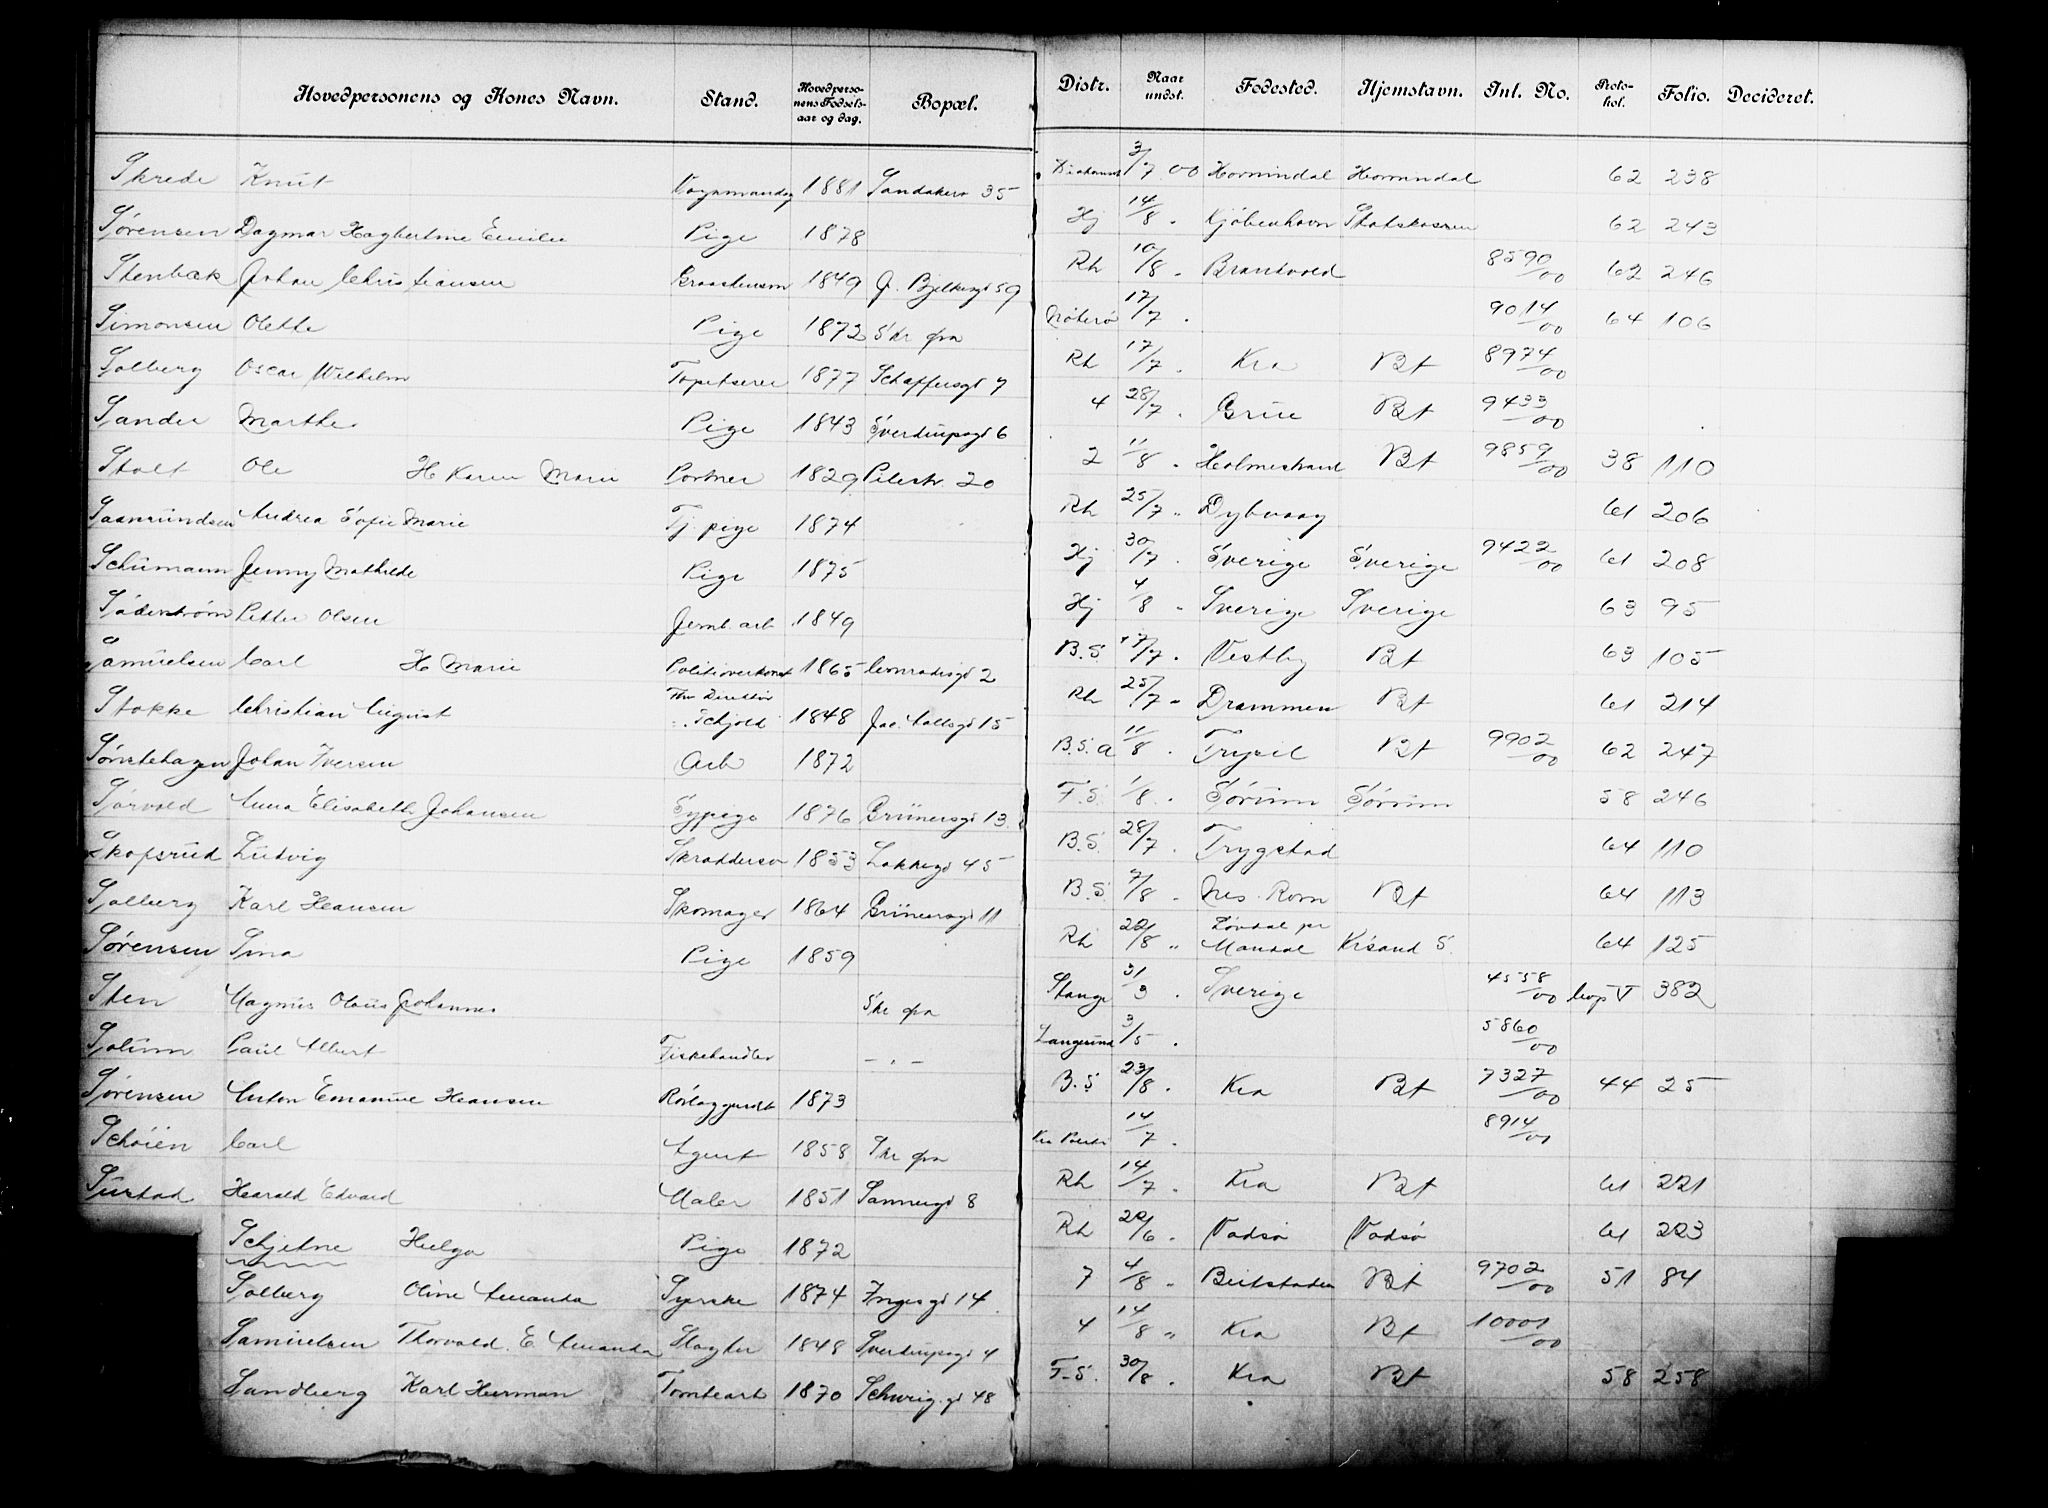 Hovedpersonens og Kones Navn. Stand. Hovedperso-nens Fødsels-aar og dag. Bopæl. Distr. Naar undst. Fødested. Hjemstavn. Inl. No. Proto-kol. Folio. Decideret.
Skrede Knut 1881 Sandakerv 35 3/7 00 Hornindal Hornindal 62 238
Sørensen Dagmar Hagbertine Emilie Pige 1878 Hj 14/8 . Kjøbenhavn Statskassen 62 243
Stenbæk Johan Christiansen 1849 J. Bjelkesgd 59 Rh 10/8 . Brandvold 8590/00 62 246
Simonsen Olette Pige 1872 Skr fra Nøterø 17/7 . 9014/00 64 106
Solberg Oscar Wilhelm Tapetserer 1877 Schaffersgd 7 Rh 17/7 . Kra Bt 8974/00
Sander Marthe Pige 1843 Sverdrupsgd 6 4 28/7 . Grue Bt 9433/00
Stolt Ole H Karen Marie Portner 1829 Pilestr. 20 2 11/8 . Holmestrand Bt 9859/00 38 110
Saamundsen Andrea Sofie Marie Tj. pige 1874 Rh 25/7 " Dybvaag 61 206
Schumann Jenny Mathilde Pige 1875 Hj 30/7 . Sverige Sverige 9422/00 61 208
Søderstrøm Petter Olsen Jernb. arb 1849 Hj 4/8 " Sverige Sverige 63 95
Samuelsen Carl H Marie Politioverkonst 1865 Conradisgd 2 B.S. 17/7 . Vestby Bt 63 105
Stokke Christian August Fhv Direktør Schjold 1848 Jac. Aallsgd 15 Rh 25/7 " Drammen Bt 61 214
Sønstehagen Johan Iversen Arb 1872 B.S. a 11/8 . Trysil Bt 9902/00 62 247
Sørvold Anna Elisabeth Johansen Sypige 1876 Grünersgd 13 F.S. 1/8 . Sørum Sørum 58 246
Skofsrud Ludvig Skrædersv 1853 Løkkegd 45 B.S. 28/7 . Trygstad 64 110
Solberg Karl Hansen Skomager 1864 Grünersgd 11 B.S. 7/8 . Nes. Rom Bt 64 113
Sørensen Sina Pige 1859 Rh 22/8 " Løvdal pr Mandal Krsand S. 64 125
Sten Magnus Olaus Johannes Skr fra Stange 31/3 . Sverige 4558/00 Cop V 382
Solum Paul Albert Fiskehandler - " - Langesund 3/5 . 5860/00
Sørensen Anton Emanuel Hansen Rørlæggersvdt 1873 B.S 23/8 . Kra Bt 7327/00 44 25
Schøien Carl Agent 1858 Skr fra Kra Politi 14/7 . 8914/00
Surstad Harald Edvard Maler 1851 Sannergd 8 Rh 14/7 . Kra Bt 61 221
Schjetne Helga Pige 1872 Rh 22/6 . Vadsø Vadsø 61 223
Solberg Oline Amanda Syerske 1874 Ingesgd 14 7 4/8 " Beitstaden Bt 9702/00 51 84
Samuelsen Thorvald. E Amanda Slagter 1848 Sverdrupsgd 4 4 14/8 " Kra Bt 10001/00
Sandberg Karl Herman Tomtearb 1870 Schweig. gd 48 F.S. 30/8 . Kra Bt 58 258